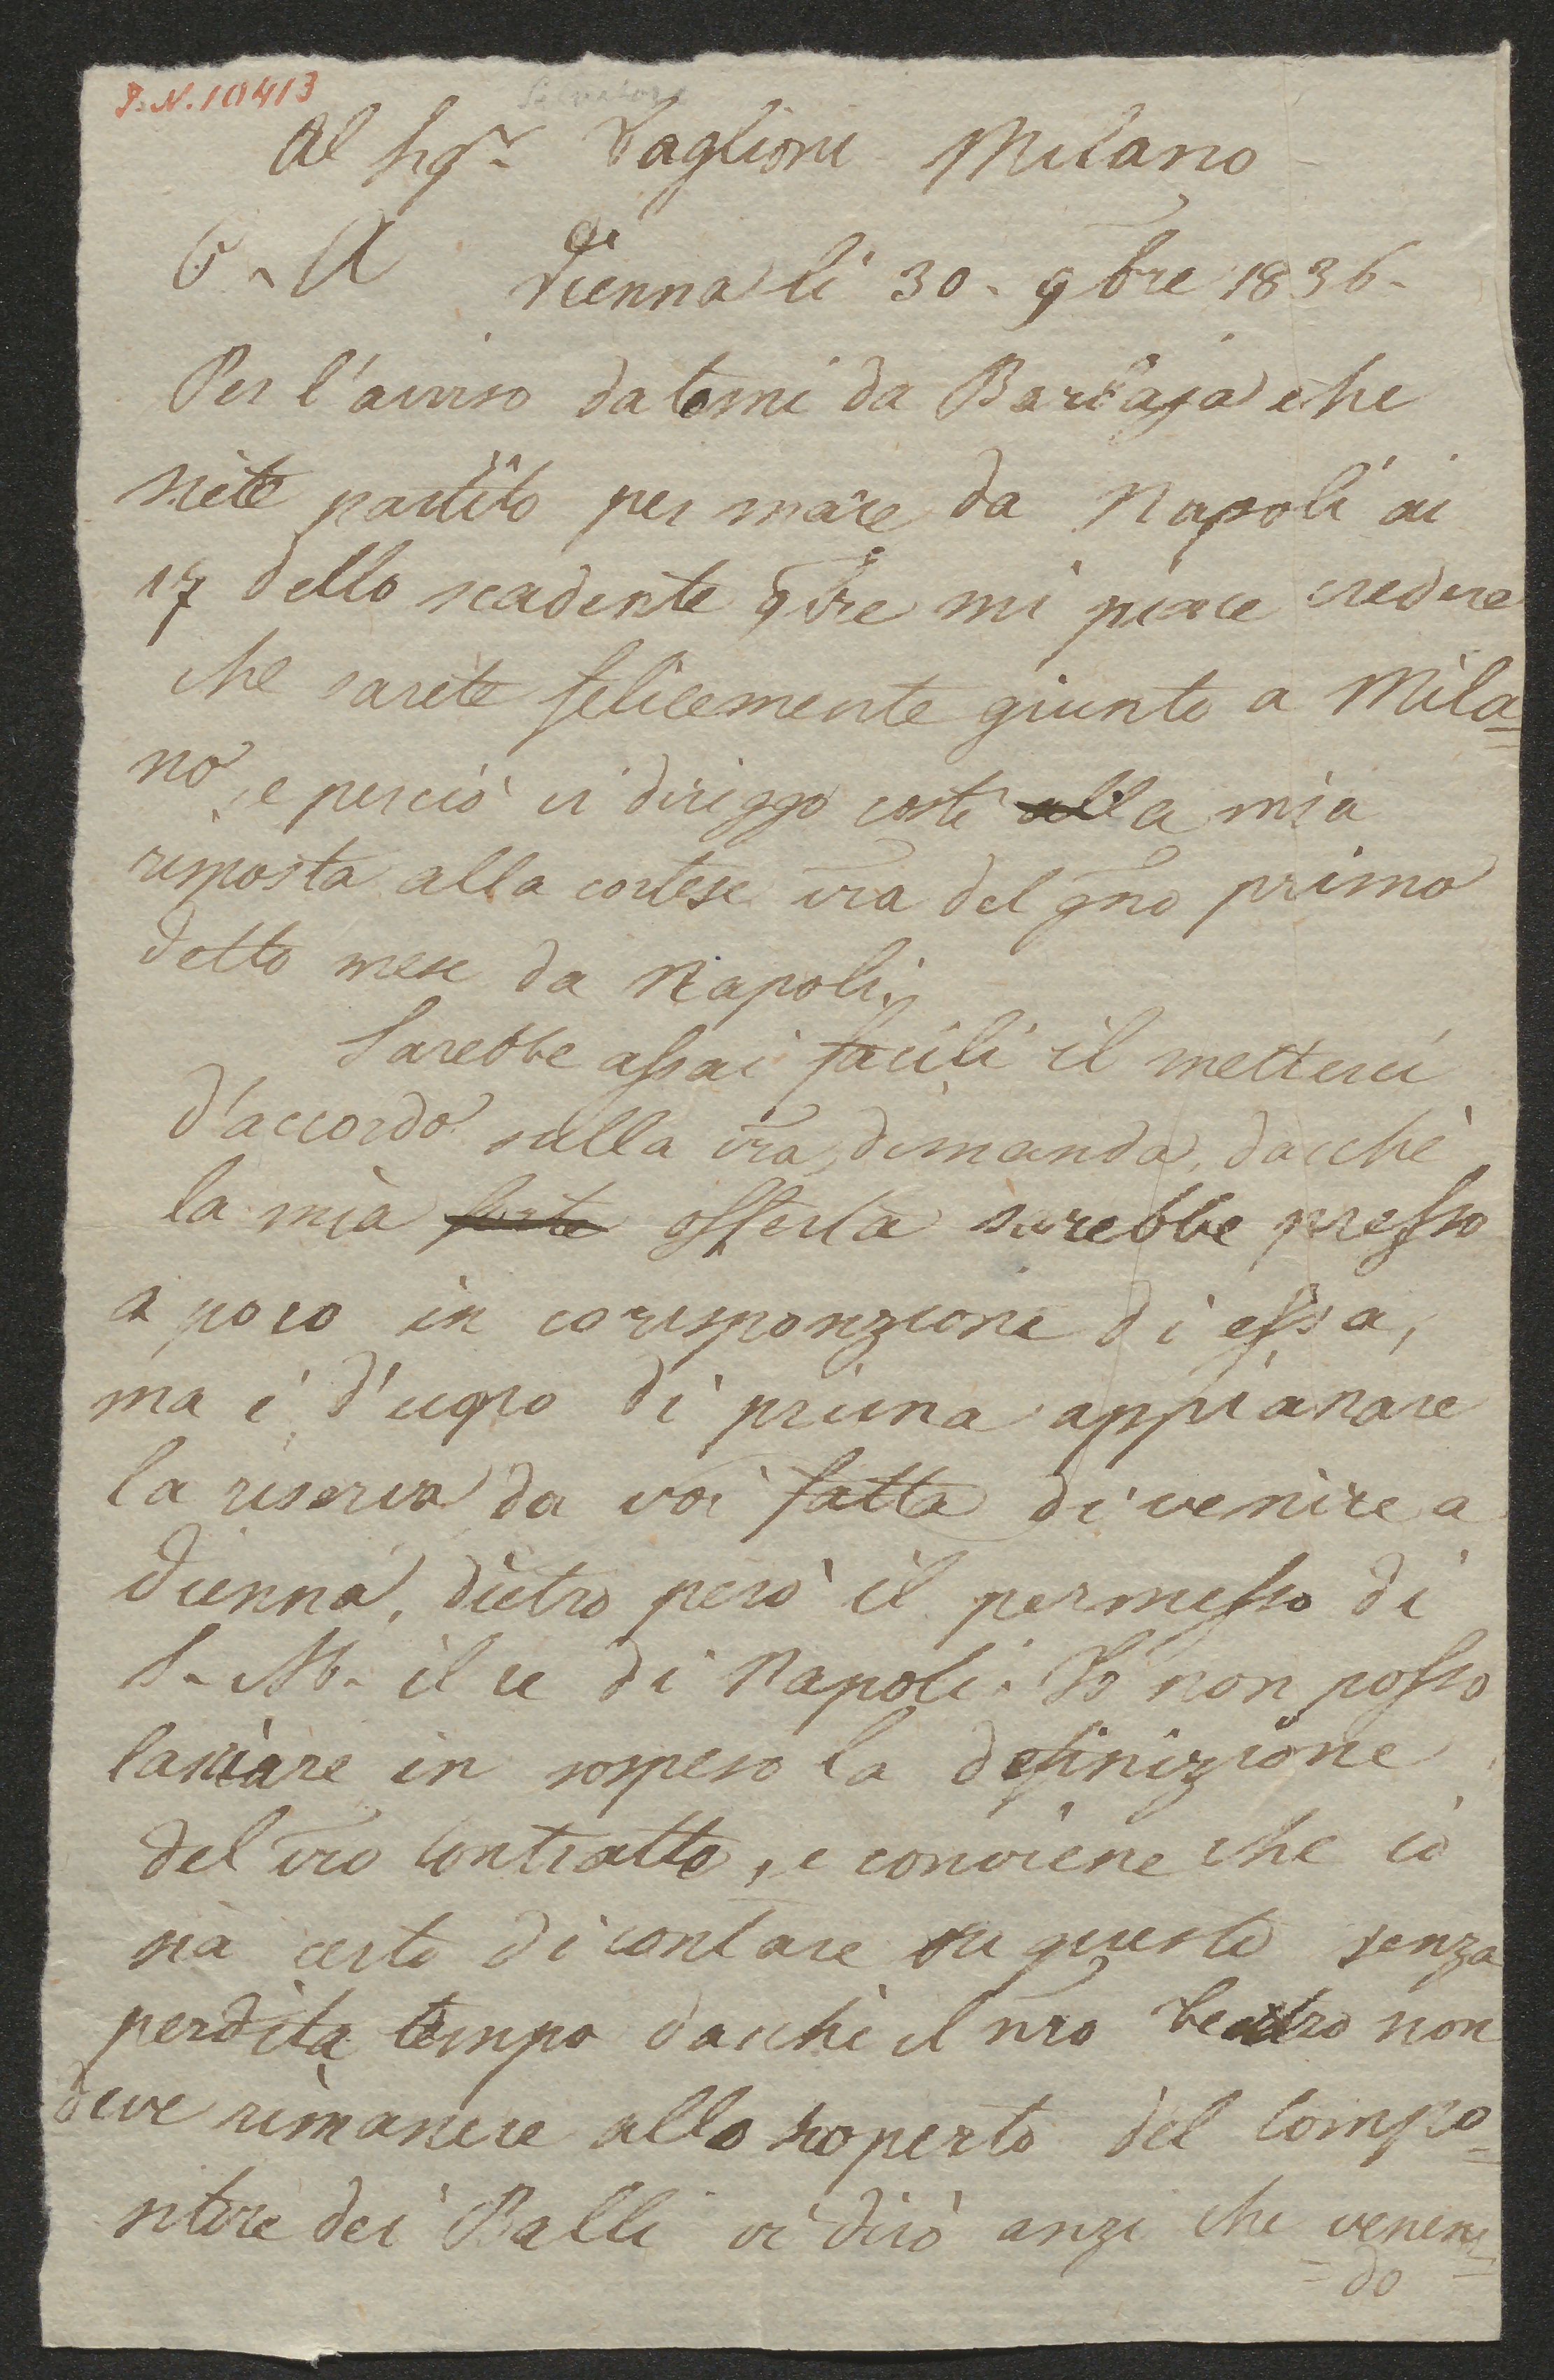 J.N.10413
Salvatore
Al Sigr. Taglioni Milano
C. A
di
Vienna li 30. 9bre 1836.
Per l'avviso datomi da Barbaja che
siete partito per mare da Napoli ai
17 dello scadente 9bre mi piace credere
che sarete felicemente giunto a Mila=
no, e perciò vi diriggo costì alla mia
risposta alla cortese vra del gno primo
detto mese da Napoli.
Sarebbe assai facili il metterci
d'accordo sulla vra dimanda, dacchè
la mia forte offerta sarebbe presso
a poco in corisponzione di essa,
ma è d'uopo di prima appianare
la riserva da voi fatta di venire a
Vienna, dietro però il permesso di
S. M. il re di Napoli. Io non posso
lasciare in sospeso la definizione
del vro contratto, e conviene che io
sia certo di contare su questo senza
perdita tempo dacchè il nro teatro non
deve rimanere allo scoperto del compo=
sitore dei Balli vi dirò anzi che venen=
=do